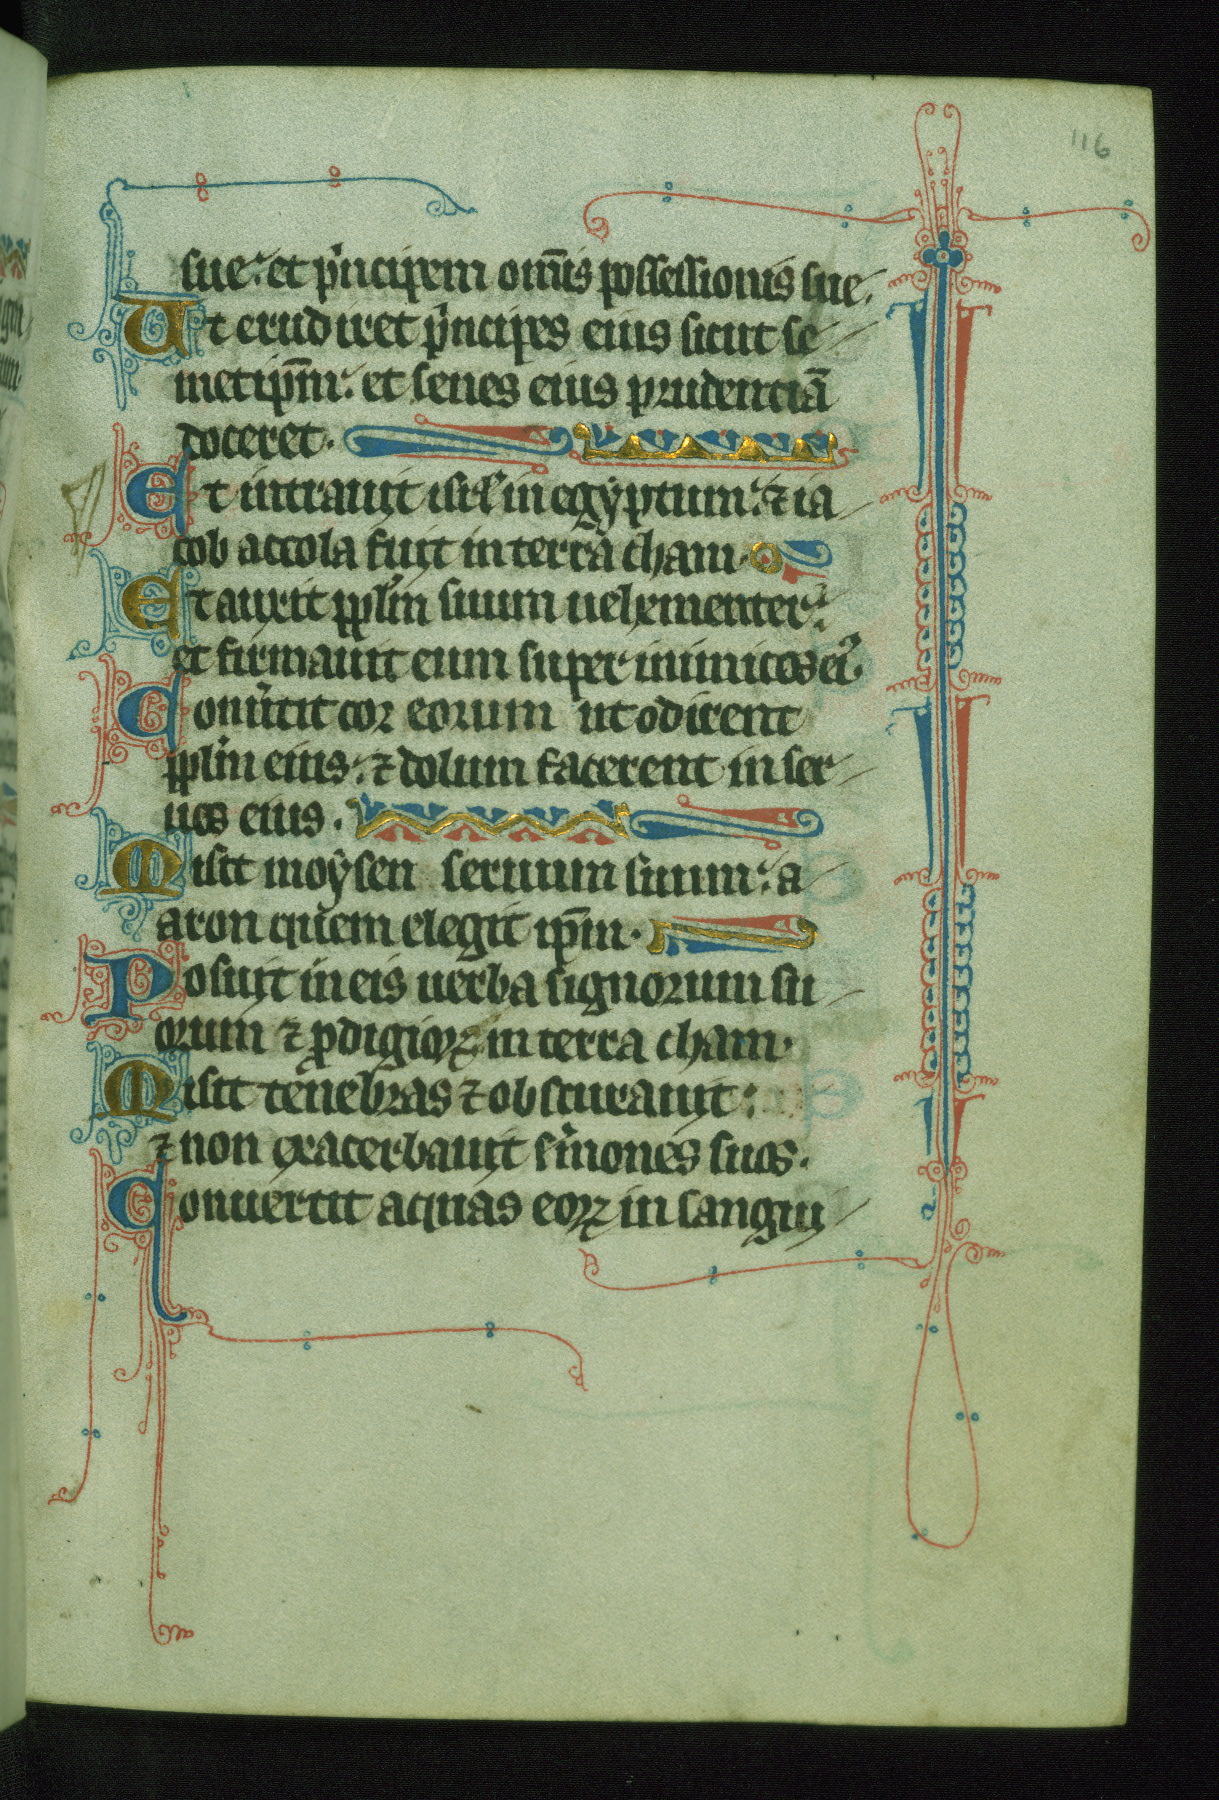 116
sue: et p̄ncipem om̄is possessionis sue.
Ut erudiret p̄ncipes eius sicut se
metip̄m: et senes eius prudentiā
doceret.
Et intrauit isrl̄ in egyptum: ⁊ ia
cob accola fuit in terra cham.
Et auxit ppl̄m suum uehementer:
et firmauit eum super inimicos ei᷒.
Conu̾tit cor eorum ut odirent
ppl̄m eius: ⁊ dolum facerent in ser
uos eius.
Misit moysen seruum suum: a
aron quem elegit ip̄m.
Posuit in eis uerba signorum su
orum ⁊ ꝓdigioꝝ in terra cham.
Misit tenebras ⁊ obscurauit:
⁊ non exacerbauit s̄mones suos.
Conuertit aquas eoꝝ in sangui